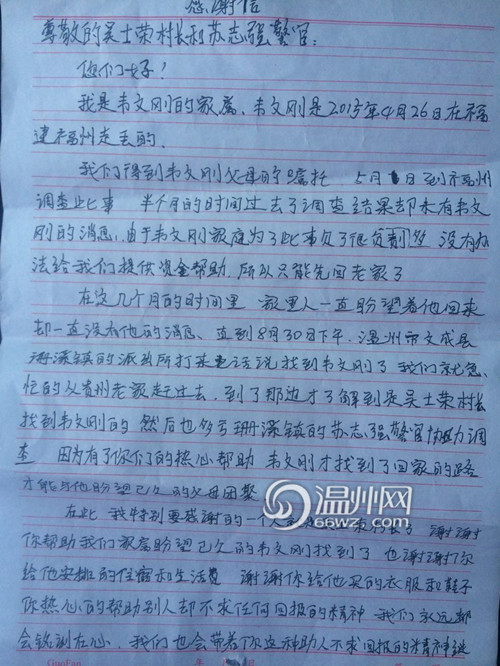 感谢信
尊敬的吴士荣村长和苏志强警官:
你们好!
我是韦文刚的家属、韦文刚是2013年4月26日在福
建福州走丢的.
我们得到韦文刚父母的嘱托 5月 日到福州
调查此事 半个月的时间过去了调查结果却未有韦文
刚的消息、由于韦文刚家庭为了此事负了很 没有办
法给我们提供资金帮助.所以只能先回老家了
在这几个月的时间里 家里人一直盼望着他回来
却一直没有他的消息、直到8月30日下午.温州市文成县
珊溪镇的派出所打来电话说找到韦文刚了 我们就急
忙的从贵州老家赶过去.到了那边才了解到是吴士荣村长
找到韦文刚的 然后也多亏珊溪镇的苏志强警官协助调
查 因为有了你们的热心帮助 韦文刚才找到了回家的路
才能与他盼望已久的父母团聚
在此 我特别要感谢的一个人 谢谢
你帮助我们家属盼望已久的韦文刚找到了 也谢谢你
给他安排的住宿和生活费 谢谢你给他买的衣服和鞋子
你热心的帮助别人却不求任何回报的精神 我们永远都
会铭刻在心、我们也会带着你这种助人不求回报的精神继
温州网
66wz.com
GuoFan